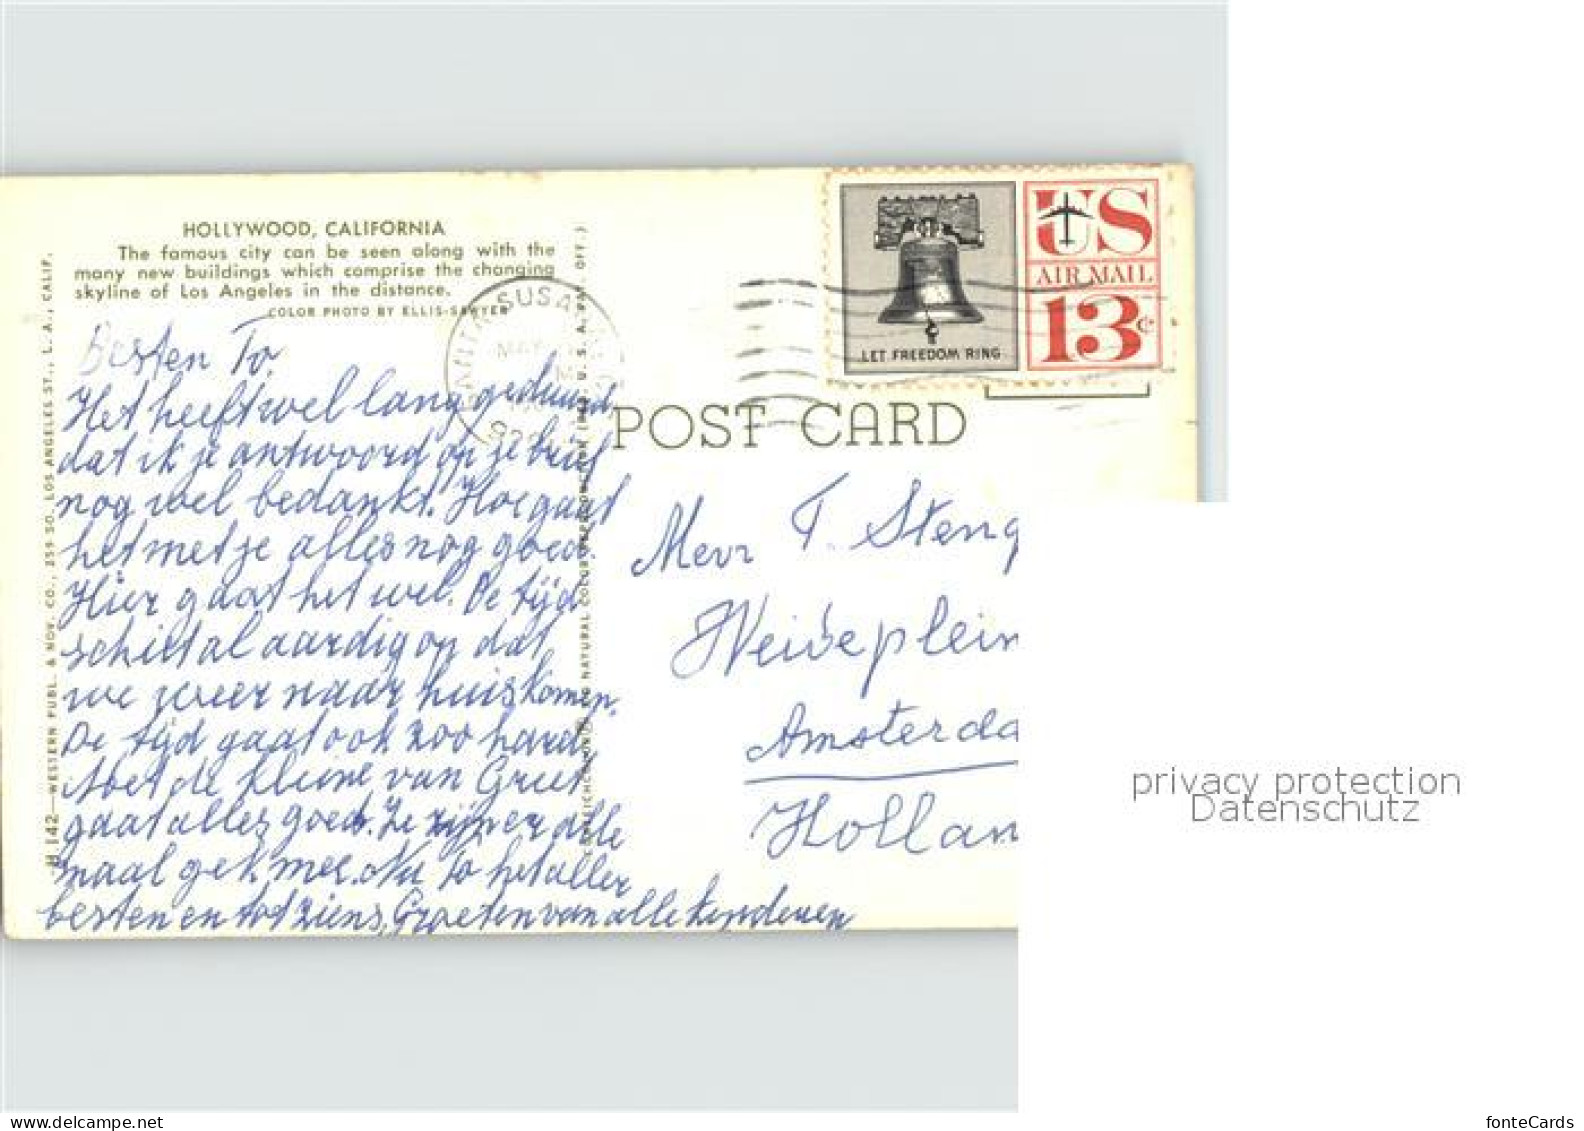 HOLLYWOOD, CALIFORNIA
The famous city can be seen along with the
many new buildings which comprise the changing
skyline of Los Angeles in the distance.
COLOR PHOTO BY ELLIS-SAWYER
H 142—WESTERN PUBL. & NOV. CO., 259 SO. LOS ANGELES ST., L. A., CALIF.
Besten To.
Het heeft wel lang geduurd
dat ik je antwoord op je brief
nog wel bedankt. Hoe gaat
het met je alles nog goed.
Hier gaat het wel. De tijd
schiet al aardig op dat
we weer naar huis komen.
De tijd gaat ook zoo hard
Met de kleine van Greet
gaat alles goed. Ze zijn er alle
maal gek mee. Nu To het aller
besten en tot ziens, Groeten van alle
SUSA
MAY
NATURAL COLOR REPRODUCTION U. S. A. PAT. OFF.)
LET FREEDOM RING
US
AIR MAIL
13c
POST CARD
Mevr T. Steng
Weideplein
Amsterda
Hollan
privacy protection
Datenschutz
www.delcampe.net
fonteCards